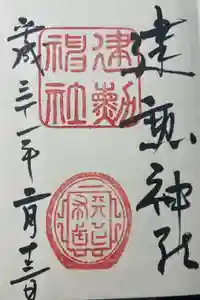 建勲神社
建勲
神社
平成三十一年二月十三日